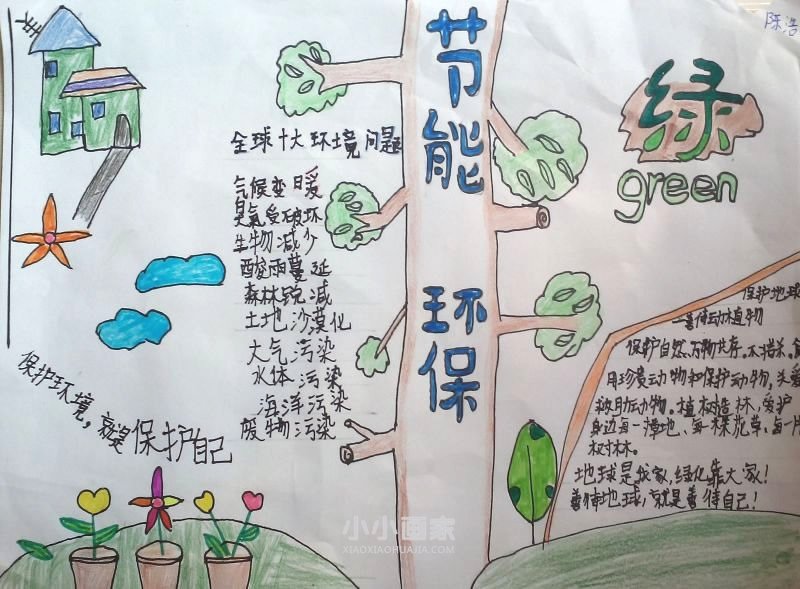 陈浩
节能环保
绿
green
全球十大环境问题
气候变暖
臭氣受破坏
生物减少
酸雨蔓延
森林锐减
土地沙漠化
大气污染
水体污染
海洋污染
废物污染
保护环境，就是保护自己
保护地球
善待动植物
保护自然、万物共存。不捕杀、食
用珍贵动物和保护动物，关爱
救助动物。植树造林，爱护
身边每一 地、每一棵花草、每一片
树林。
地球是我家，绿化靠大家！
善待地球，就是善待自己！
小小画家
XIAOXIAOHUAJIA.COM